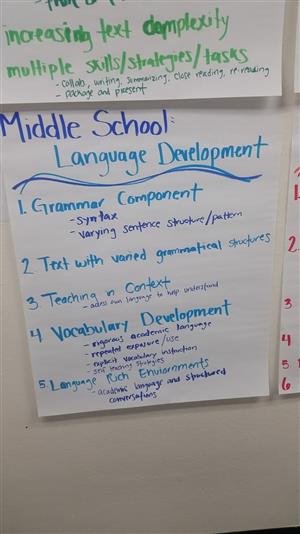 increasing text complexity
multiple skills/strategies/tasks
- collab, writing, summarizing, close reading, re-reading
- package and present
Middle School:
Language Development
1. Grammar Component
- syntax
- varying sentence structure/pattern
2. Text with varied grammatical structures
3. Teaching in Context
own language to help understand
4. Vocabulary Development
- rigorous academic language
- repeated exposure/use
- explicit vocabulary instruction
- self teaching strategies
5. Language Rich Enviornments
- academic language and structured
conversations
2.
3
4
5
6